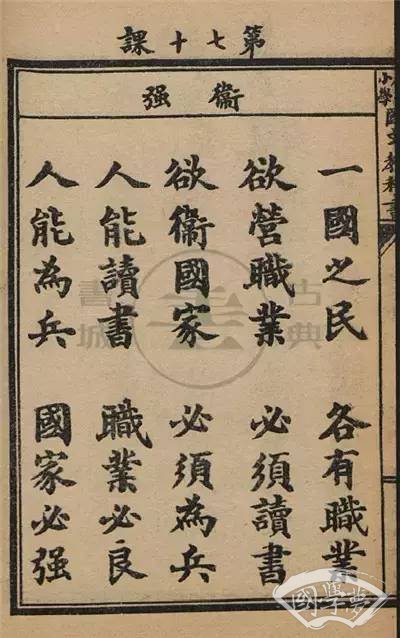 第七十課
衛强
一國之民 各有職業
欲營職業 必須讀書
欲衛國家 必須為兵
人能讀書 職業必良
人能為兵 國家必强
小學國文教科書
古典書城
國學夢